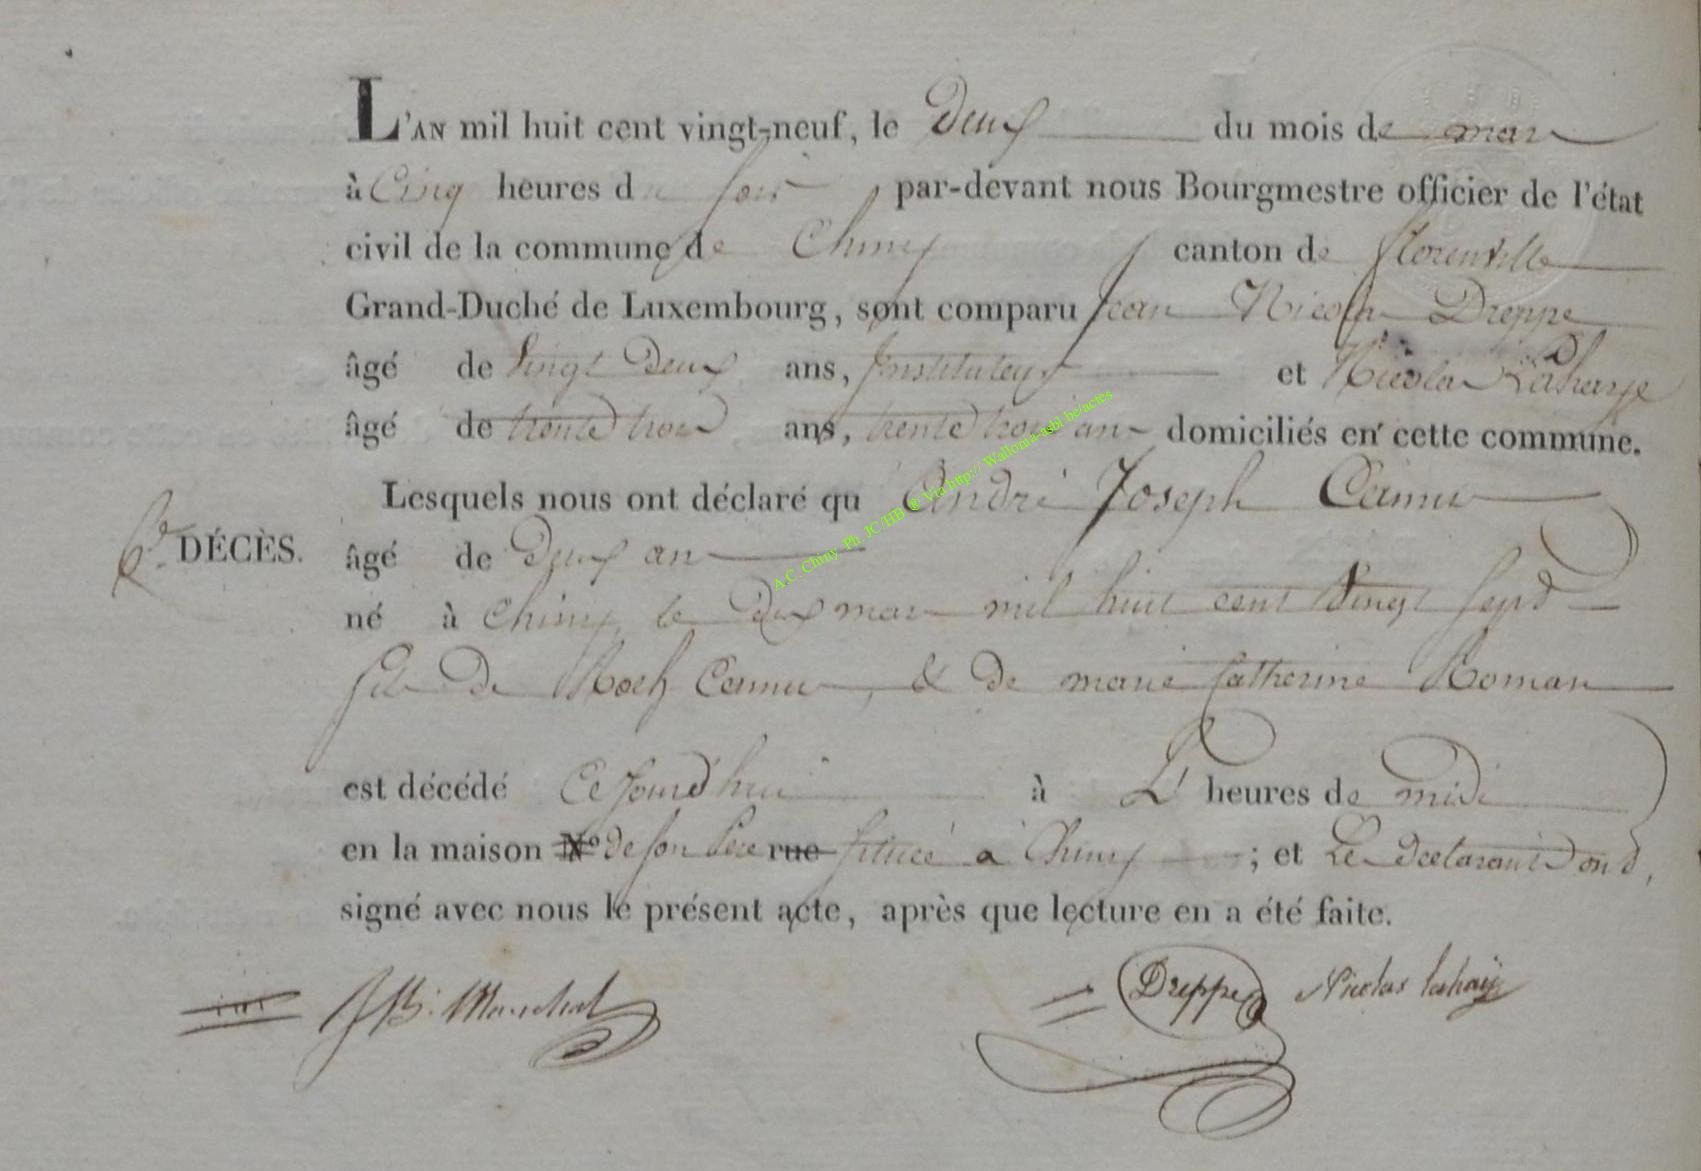 L'AN mil huit cent vingt-neuf, le Deux du mois de mars
à Cinq heures du soir par-devant nous Bourgmestre officier de l'état
civil de la commune de Chiny canton de florenville
Grand-Duché de Luxembourg, sont comparu Jean Nicolas Dreppe
âgé de Vingt Deux ans, Instituteur et Nicolas Lahaye
âgé de trente trois ans, trente trois ans domiciliés en cette commune.
Lesquels nous ont déclaré qu André Joseph Camus
6e DÉCÈS. âgé de Deux ans
né à Chiny le Deux mars mil huit cent Vingt Sept
fils de Roch Camus, & de marie Catherine Roman
est décédé Ce Jourd'hui à heures de midi
en la maison N° de son Père rue située à Chiny ; et Les Declarants ont,
signé avec nous le présent acte, après que lecture en a été faite.
JB. Marchal Dreppe Nicolas lahaÿe
A.C. Chiny Ph. JC/HB ® Via http:// Wallonia-asbl.be/actes